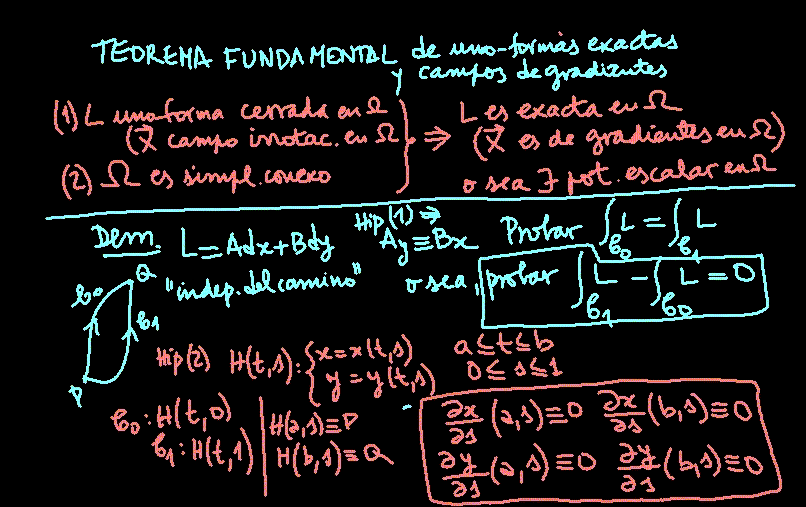 TEOREMA FUNDAMENTAL de uno-formas exactas
y campos de gradientes
(1) L uno-forma cerrada en Ω
(X⃗ campo irrotac. en Ω
(2) Ω es simpl. conexo
⇒ L es exacta en Ω
(X⃗ es de gradientes en Ω)
o sea ∃ pot. escalar en Ω
Dem. L = Adx + Bdy
Hip(1) ⇒
Ay ≡ Bx
Probar ∫_{𝒞0} L = ∫_{𝒞1} L
"indep. del camino"
o sea, probar ∫_{𝒞1} L − ∫_{𝒞0} L = 0
Q
𝒞0
𝒞1
P
Hip(2) H(t,s): { x = x(t,s)
y = y(t,s)
a ≤ t ≤ b
0 ≤ s ≤ 1
𝒞0: H(t,0)
𝒞1: H(t,1)
H(a,s) ≡ P
H(b,s) ≡ Q
∂x/∂s (a,s) ≡ 0 ∂x/∂s (b,s) ≡ 0
∂y/∂s (a,s) ≡ 0 ∂y/∂s (b,s) ≡ 0